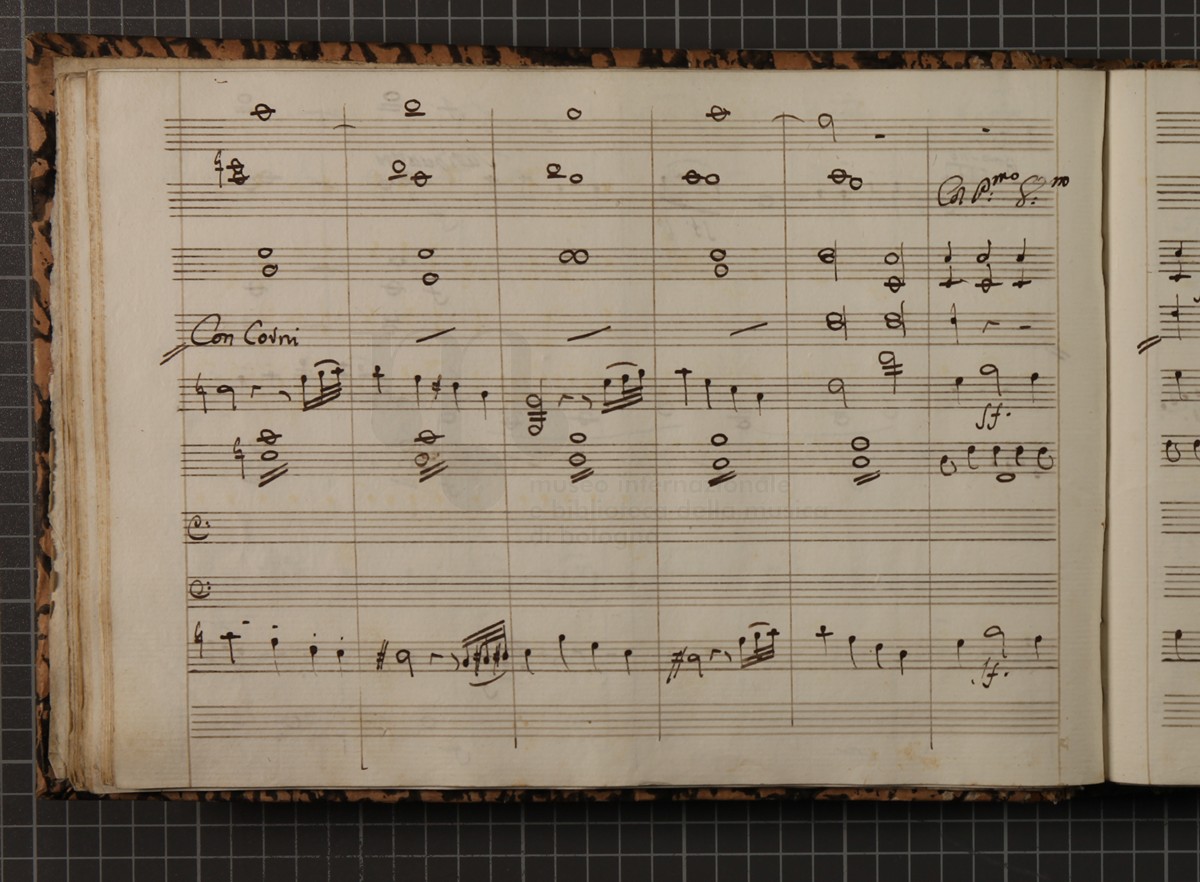 Con P.mo S.mo
Con Corni
sf.
museo internazionale
e biblioteca della musica
di bologna
sf.